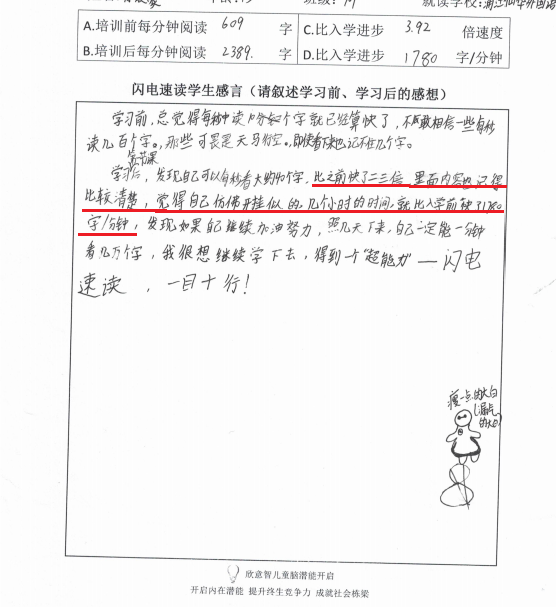 就读学校:浙江仙华外国语
A.培训前每分钟阅读 609 字 C.比入学进步 3.92 倍速度
B.培训后每分钟阅读 2389. 字 D.比入学进步 1780 字/分钟
闪电速读学生感言（请叙述学习前、学习后的感想）
学习前，总觉得每秒钟读 个字就已经算快了，不敢相信一些每秒
读几百个字。那些可是天马行空。即使看下来也记不住几个字。
第一节课
学习后，发现自己可以每秒看大约40个字，比之前快了二三倍，里面内容也记得
比较清楚，觉得自己仿佛开挂似的，几个小时的时间，就比入学前快了1780
字/分钟，发现如果自己继续加油努力，照几天下来，自己一定能一分钟
看几万个字，我很想继续学下去，得到一个“超能力”——闪电
速读，一目十行！
瘦一点的大白
(漏气
的大白)
欣意智儿童脑潜能开启
开启内在潜能 提升终生竞争力 成就社会栋梁